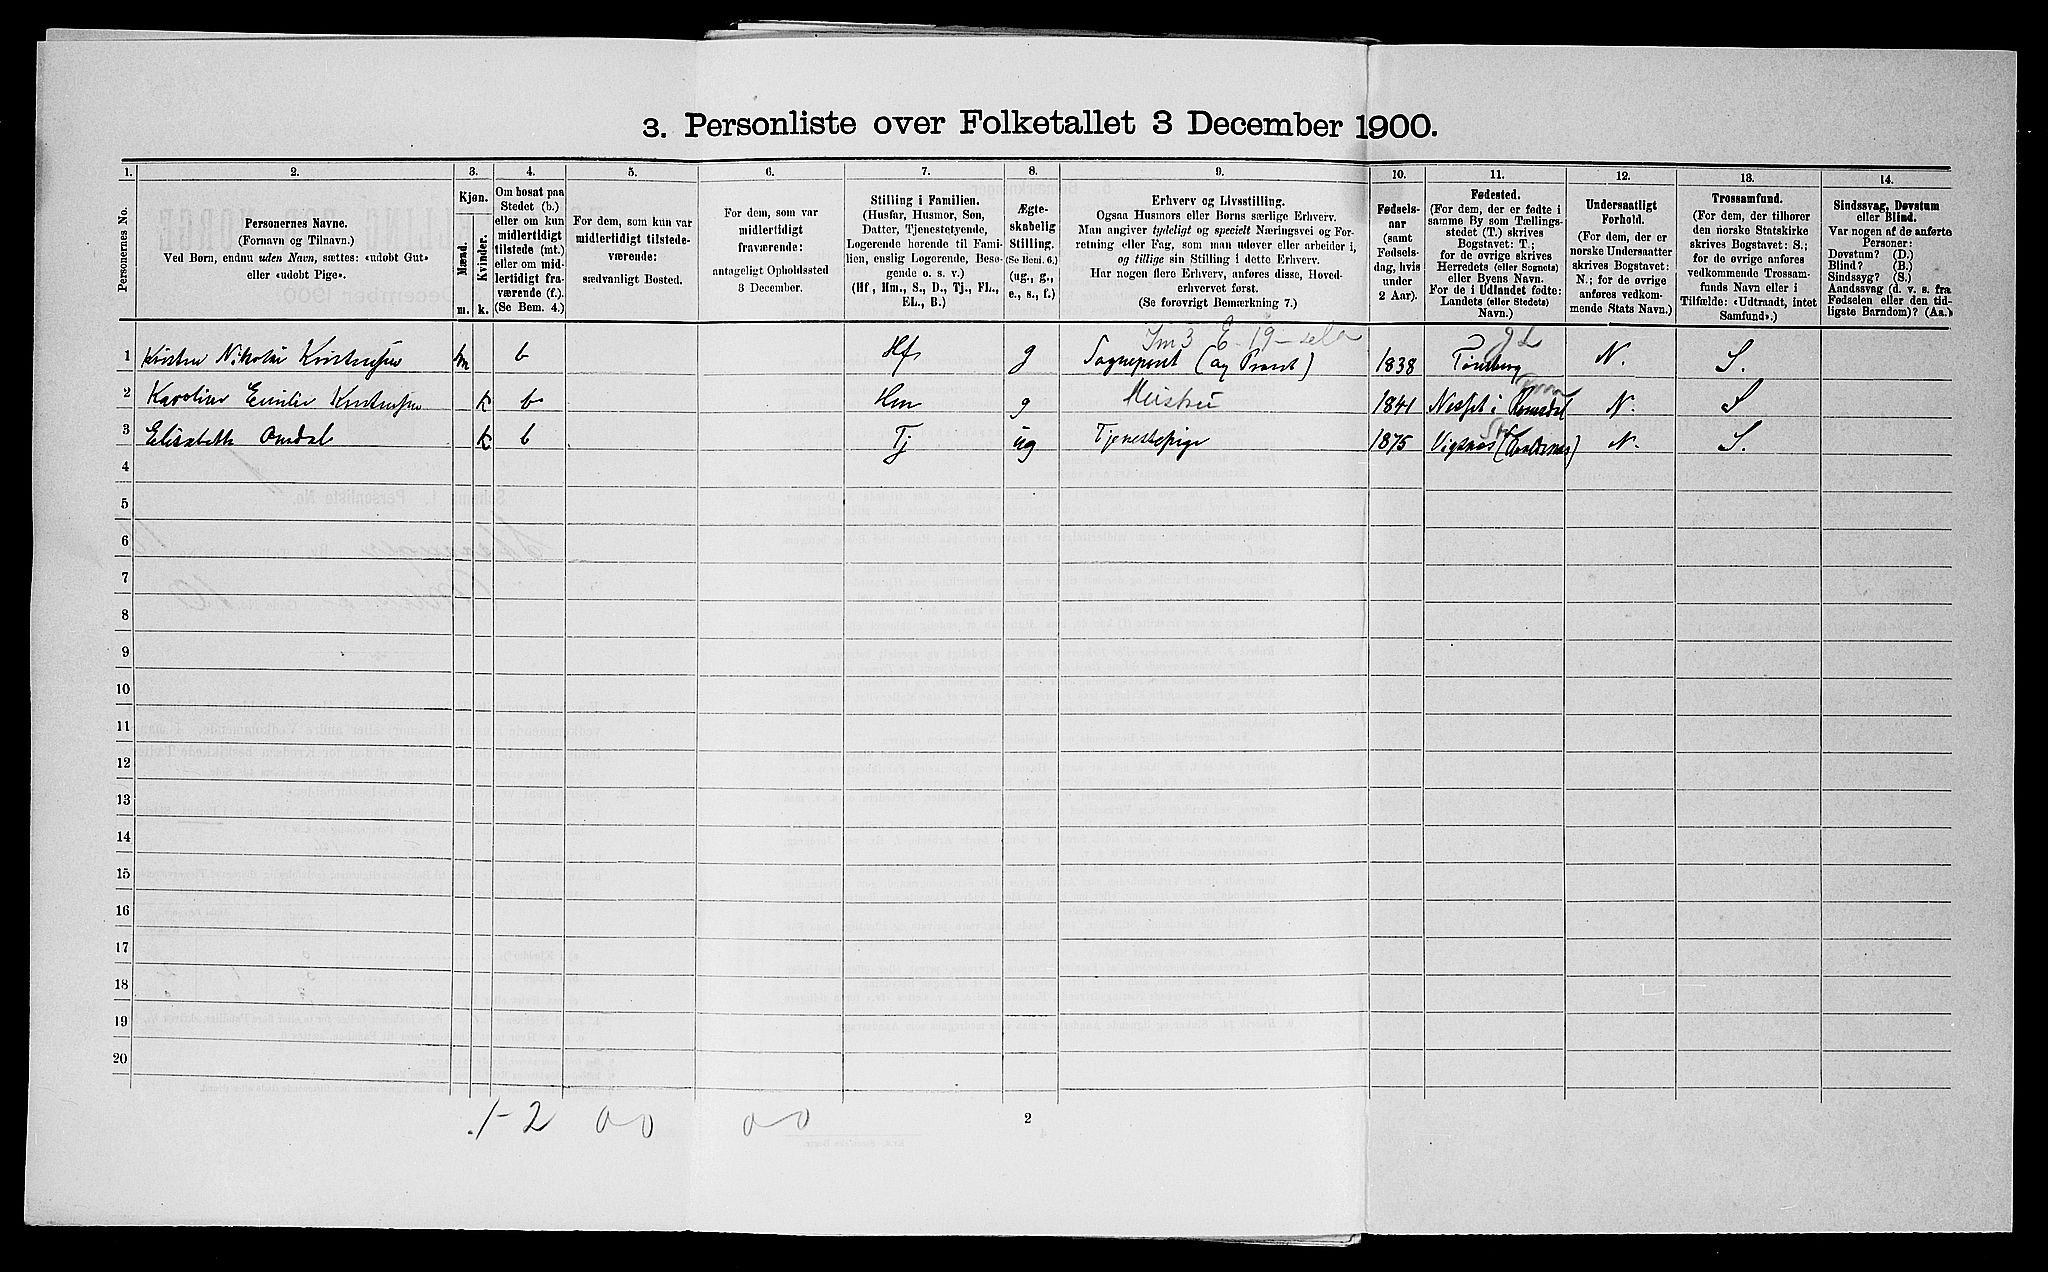 3. Personliste over Folketallet 3 December 1900.
1. 2. 3. 4. 5. 6. 7. 8. 9. 10. 11. 12. 13. 14.
Personernes No.
Personernes Navne.
(Fornavn og Tilnavn.)
Ved Børn, endnu uden Navn, sættes: «udobt Gut»
eller «udobt Pige».
Kjøn.
Mænd.
Kvinder.
m. k.
Om bosat paa
Stedet (b.)
eller om kun
midlertidigt
tilstede (mt.)
eller om mid-
lertidigt fra-
værende (f.).
(Se Bem. 4.)
For dem, som kun var
midlertidigt tilstede-
værende:
sædvanligt Bosted.
For dem, som var
midlertidigt
fraværende:
antageligt Opholdssted
3 December.
Stilling i Familien.
(Husfar, Husmor, Søn,
Datter, Tjenestetyende,
Logerende hørende til Fami-
lien, enslig Logerende, Besø-
gende o. s. v.)
(Hf, Hm., S., D., Tj., FL.,
EL., B.)
Ægte-
skabelig
Stilling.
(Se Bem. 6.)
(ug., g.,
e., s., f.)
Erhverv og Livsstilling.
Ogsaa Husmors eller Børns særlige Erhverv.
Man angiver tydeligt og specielt Næringsvei og For-
retning eller Fag, som man udøver eller arbeider i,
og tillige sin Stilling i dette Erhverv.
Har nogen flere Erhverv, anføres disse, Hoved-
erhvervet først.
(Se forøvrigt Bemærkning 7.)
Fødsels-
aar
(samt
Fødsels-
dag, hvis
under
2 Aar).
Fødested.
(For dem, der er fødte i
samme By som Tællings-
stedet (T.) skrives
Bogstavet: T.;
for de øvrige skrives
Herredets (eller Sognets)
eller Byens Navn.
For de i Udlandet fødte:
Landets (eller Stedets)
Navn.)
Undersaatligt
Forhold.
(For dem, der er
norske Undersaatter
skrives Bogstavet:
N.; for de øvrige
anføres vedkom-
mende Stats Navn.)
Trossamfund.
(For dem, der tilhører
den norske Statskirke
skrives Bogstavet: S.;
for de øvrige anføres
vedkommende Trossam-
funds Navn eller i
Tilfælde: «Udtraadt, intet
Samfund».)
Sindssvag, Døvstum
eller Blind.
Var nogen af de anførte
Personer:
Døvstum? (D.)
Blind? (B.)
Sindssyg? (S.)
Aandssvag (d. v. s. fra
Fødselen eller den tid-
ligste Barndom)? (Aa.)
1 Nikolai m b Hf g Sogneprest (og Provst) 1838 Tønsberg N. S.
2 Karoline Emilie k b Hm g Meistrei 1841 Nesset i Romsdal N. S
3 Elisabeth Omdal k b Tj ug Tjenestepige 1875 Vigsnes N. S.
4
5
6
7
8
9
10
11
12
13
14
15
16
17
18
19
20
1-2 0 0 0 0
2